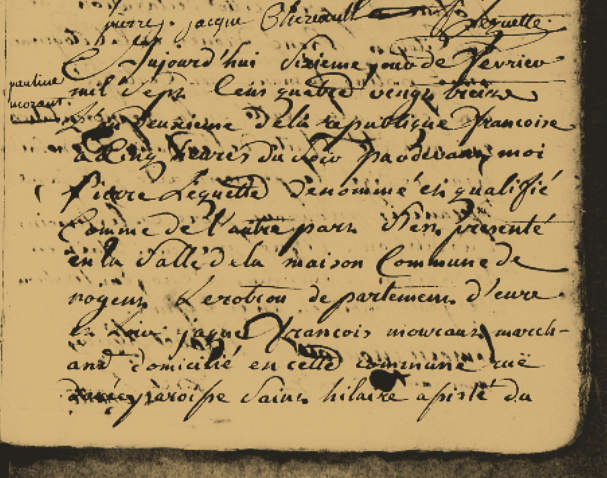 pierre jacque Lequette
pauline
morant
Aujourd'hui Sixieme jour de fevrier
mil Sept Cens quatre vingt treize
Lan deuxieme de la republique francoise
a Cinq heures du Soir pardevant moi
pierre Lequette denommé et qualifié
Comme de l'autre part S'est presenté
en la Salle de la maison Commune de
nogent Le rotrou departement d'eure
et Loir jaque francois moreau march-
and domicilié en cette commune ruë
paroisse Saint hilaire assisté du